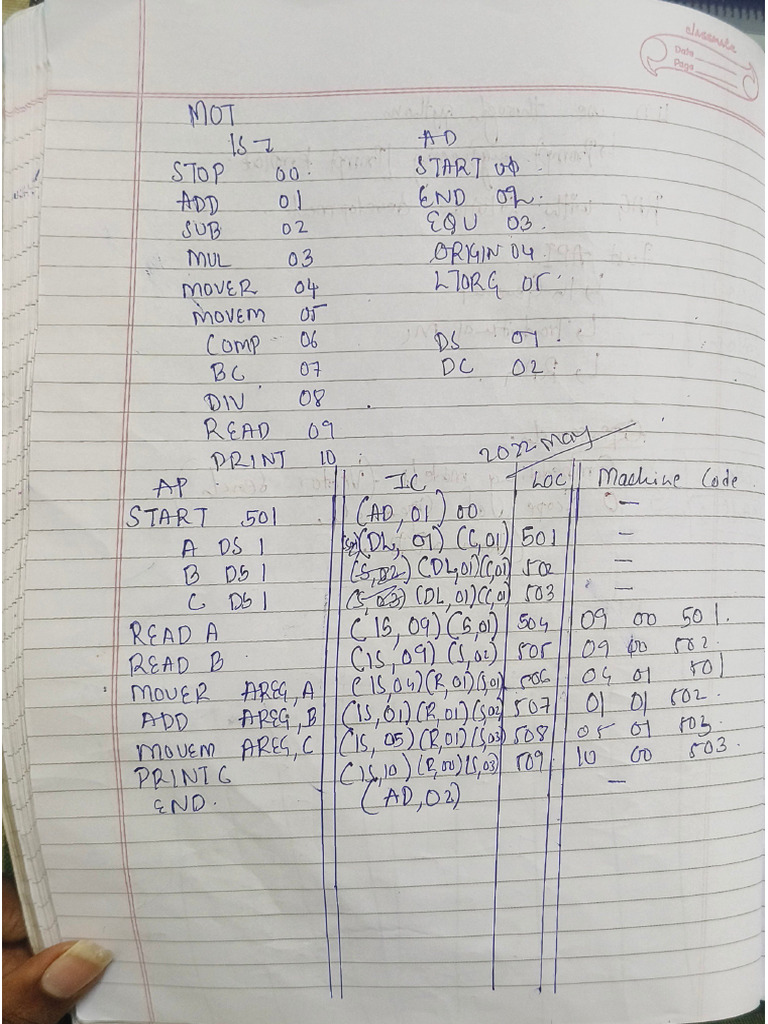 classmate
Date
Page
MOT
IS → AD
STOP 00 START 01
ADD 01 END 02
SUB 02 EQU 03
MUL 03 ORIGIN 04
MOVER 04 LTORG 05
MOVEM 05
COMP 06 DS 01
BC 07 DC 02
DIV 08
READ 09
PRINT 10
2022 May
AP IC LOC Machine Code
START 501 (AD, 01) 00 —
A DS 1 (DL, 01) (C, 01) 501 —
B DS 1 (S, 02) (DL, 01) (C, 01) 502 —
C DS 1 (S, 03) (DL, 01) (C, 01) 503 —
READ A (IS, 09) (S, 01) 504 09 00 501.
READ B (IS, 09) (S, 02) 505 09 00 502.
MOVER AREG, A (IS, 04) (R, 01) (S, 01) 506 04 01 501
ADD AREG, B (IS, 01) (R, 01) (S, 02) 507 01 01 502.
MOVEM AREG, C (IS, 05) (R, 01) (S, 03) 508 05 01 503.
PRINT C (IS, 10) (R, 00) (S, 03) 509 10 00 503.
END. (AD, 02) —